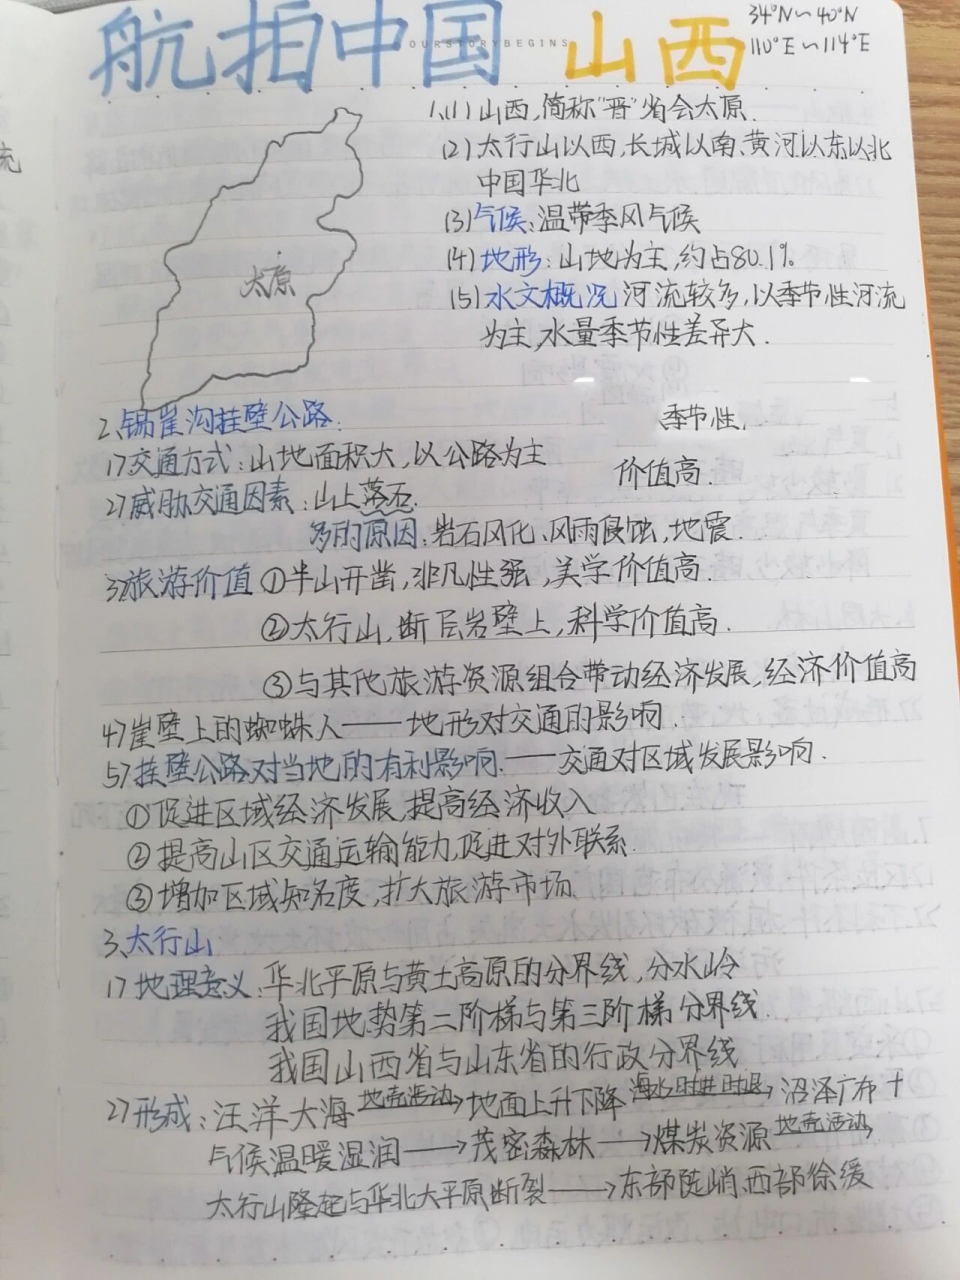 航拍中国 山西
OURSTORYBEGINS
34°N~40°N
110°E~114°E
1、(1) 山西,简称"晋"省会太原.
(2) 太行山以西,长城以南、黄河以东以北
中国华北
(3) 气候:温带季风气候
(4) 地形:山地为主,约占80.1%
太原
(5) 水文概况 河流较多,以季节性河流
为主,水量季节性差异大.
2、锡崖沟挂壁公路.
季节性,
1) 交通方式:山地面积大,以公路为主
价值高.
2) 威胁交通因素:山上落石.
多的原因:岩石风化、风雨侵蚀,地震.
3) 旅游价值 ①半山开凿,非凡性强,美学价值高.
②太行山,断层岩壁上,科学价值高.
③与其他旅游资源组合带动经济发展,经济价值高
4) 崖壁上的蜘蛛人——地形对交通的影响.
5) 挂壁公路对当地的有利影响.——交通对区域发展影响.
①促进区域经济发展,提高经济收入
②提高山区交通运输能力,促进对外联系.
③增加区域知名度,扩大旅游市场.
3、太行山
1) 地理意义:华北平原与黄土高原的分界线,分水岭
我国地势第二阶梯与第三阶梯分界线.
我国山西省与山东省的行政分界线
2) 形成:汪洋大海 地壳活动→地面上升下降 海水时进时退→沼泽广布+
气候温暖湿润——→茂密森林——→煤炭资源 地壳活动→
太行山隆起与华北大平原断裂——→东部陡峭、西部徐缓